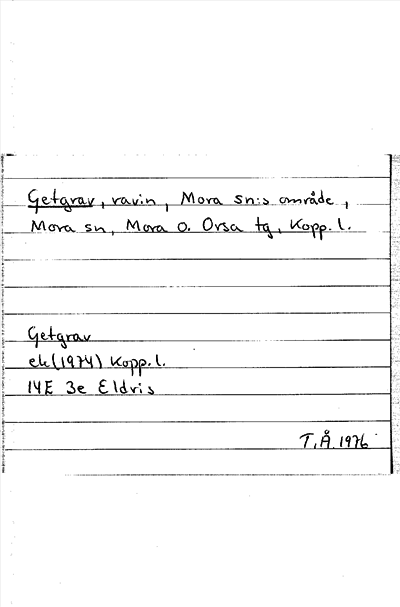 Getgrav, ravin, Mora sn:s område,
Mora sn, Mora o. Orsa tg, Kopp. l.
Getgrav
ek (1974) Kopp. l.
14E 3e Eldris
T.Å. 1976